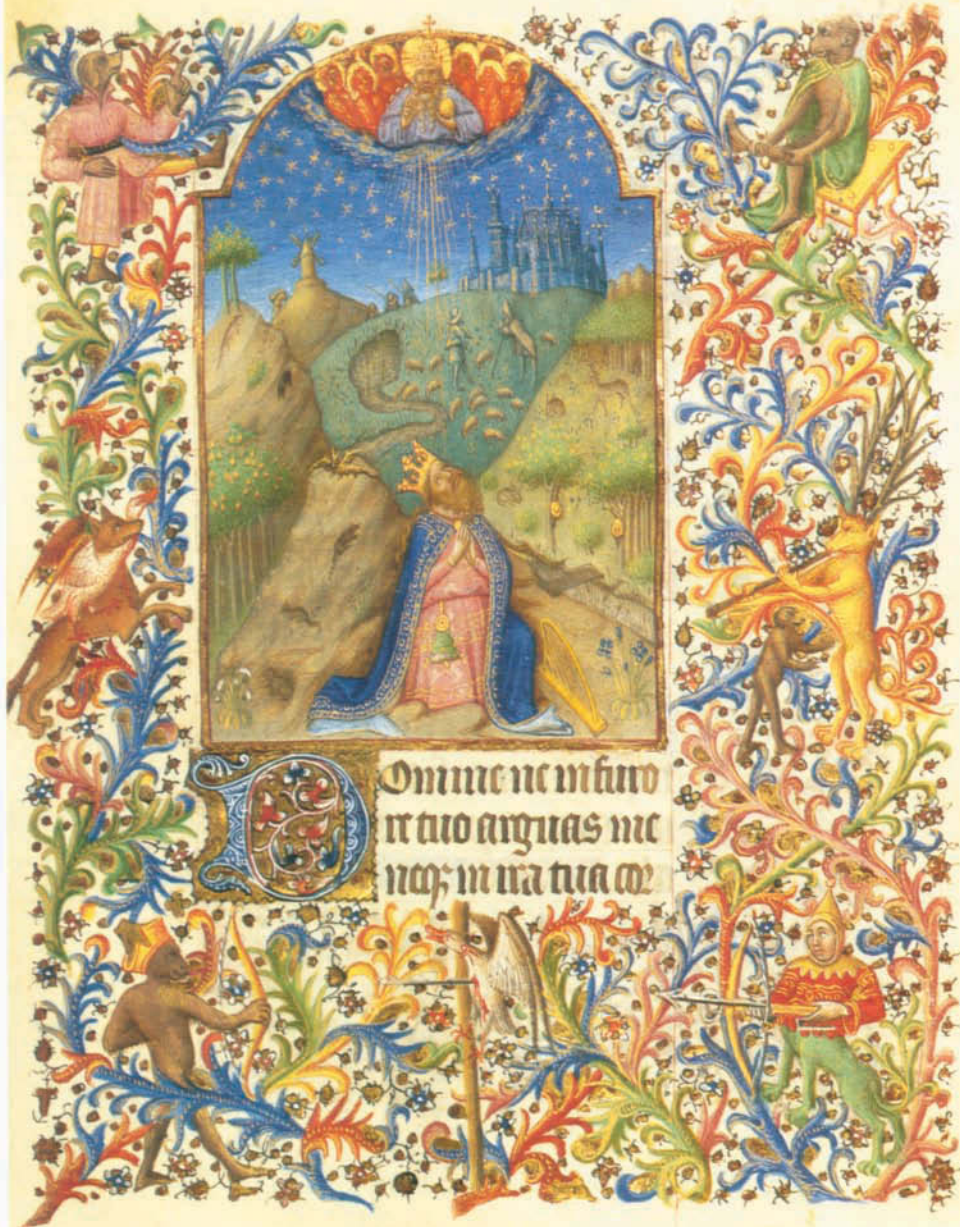 Domine ne in furo
re tuo arguas me
neqꝫ in ira tua cor